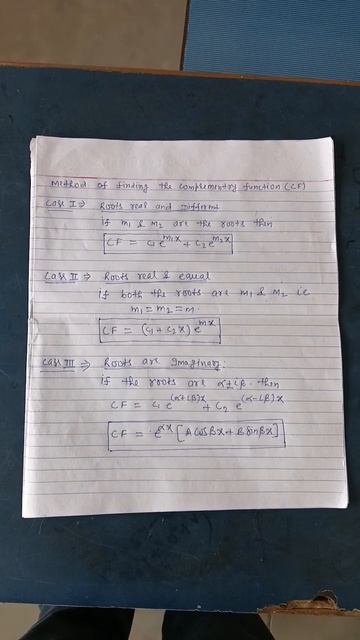 Method of finding the complementry function (CF)
Case I ⇒ Roots real and different
if m₁ & m₂ are the roots then
CF = c₁e^{m₁x} + c₂e^{m₂x}
Case II ⇒ Roots real & equal
if both the roots are m₁ & m₂ ie
m₁ = m₂ = m.
CF = (c₁ + c₂x) e^{mx}
Case III ⇒ Roots are Imaginary:
if the roots are α±iβ then
CF = c₁ e^{(α+iβ)x} + c₂ e^{(α-iβ)x}
CF = e^{αx} [A cosβx + B sinβx]